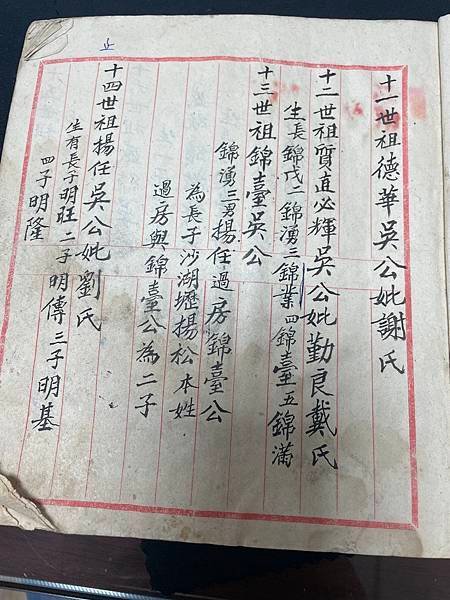 十一世祖德華吳公妣謝氏
十二世祖質直必輝吳公妣勤良戴氏
生長錦戊二錦湧三錦業四錦臺五錦滿
十三世祖錦臺吳公
錦湧三男揚任過房錦臺公
為長子沙湖壢揚松本姓
過房與錦臺公為二子
十四世祖揚任吳公妣劉氏
生有長子明旺二子明傳三子明基
四子明隆